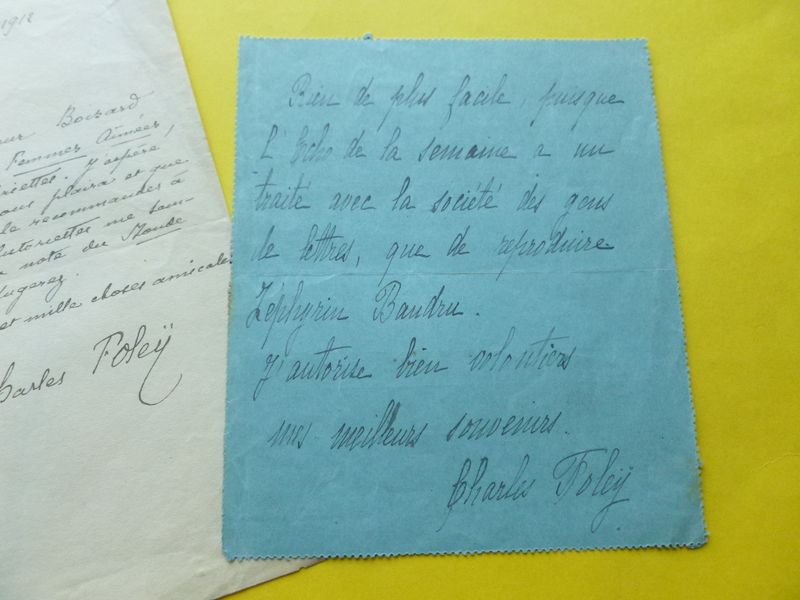 1912
Boisard
Femmes Aimées,
riettes. J'espère
ous plaira et que
le recommander à
Autoriettes me sem-
note du Monde
Jugerez.
et mille choses amicales
Charles Foleÿ
Rien de plus facile, puisque
L'Echo de la semaine a un
traité avec la société des gens
de lettres, que de reproduire
Zéphyrin Baudru.
J'autorise bien volontiers
mes meilleurs souvenirs.
Charles Foleÿ